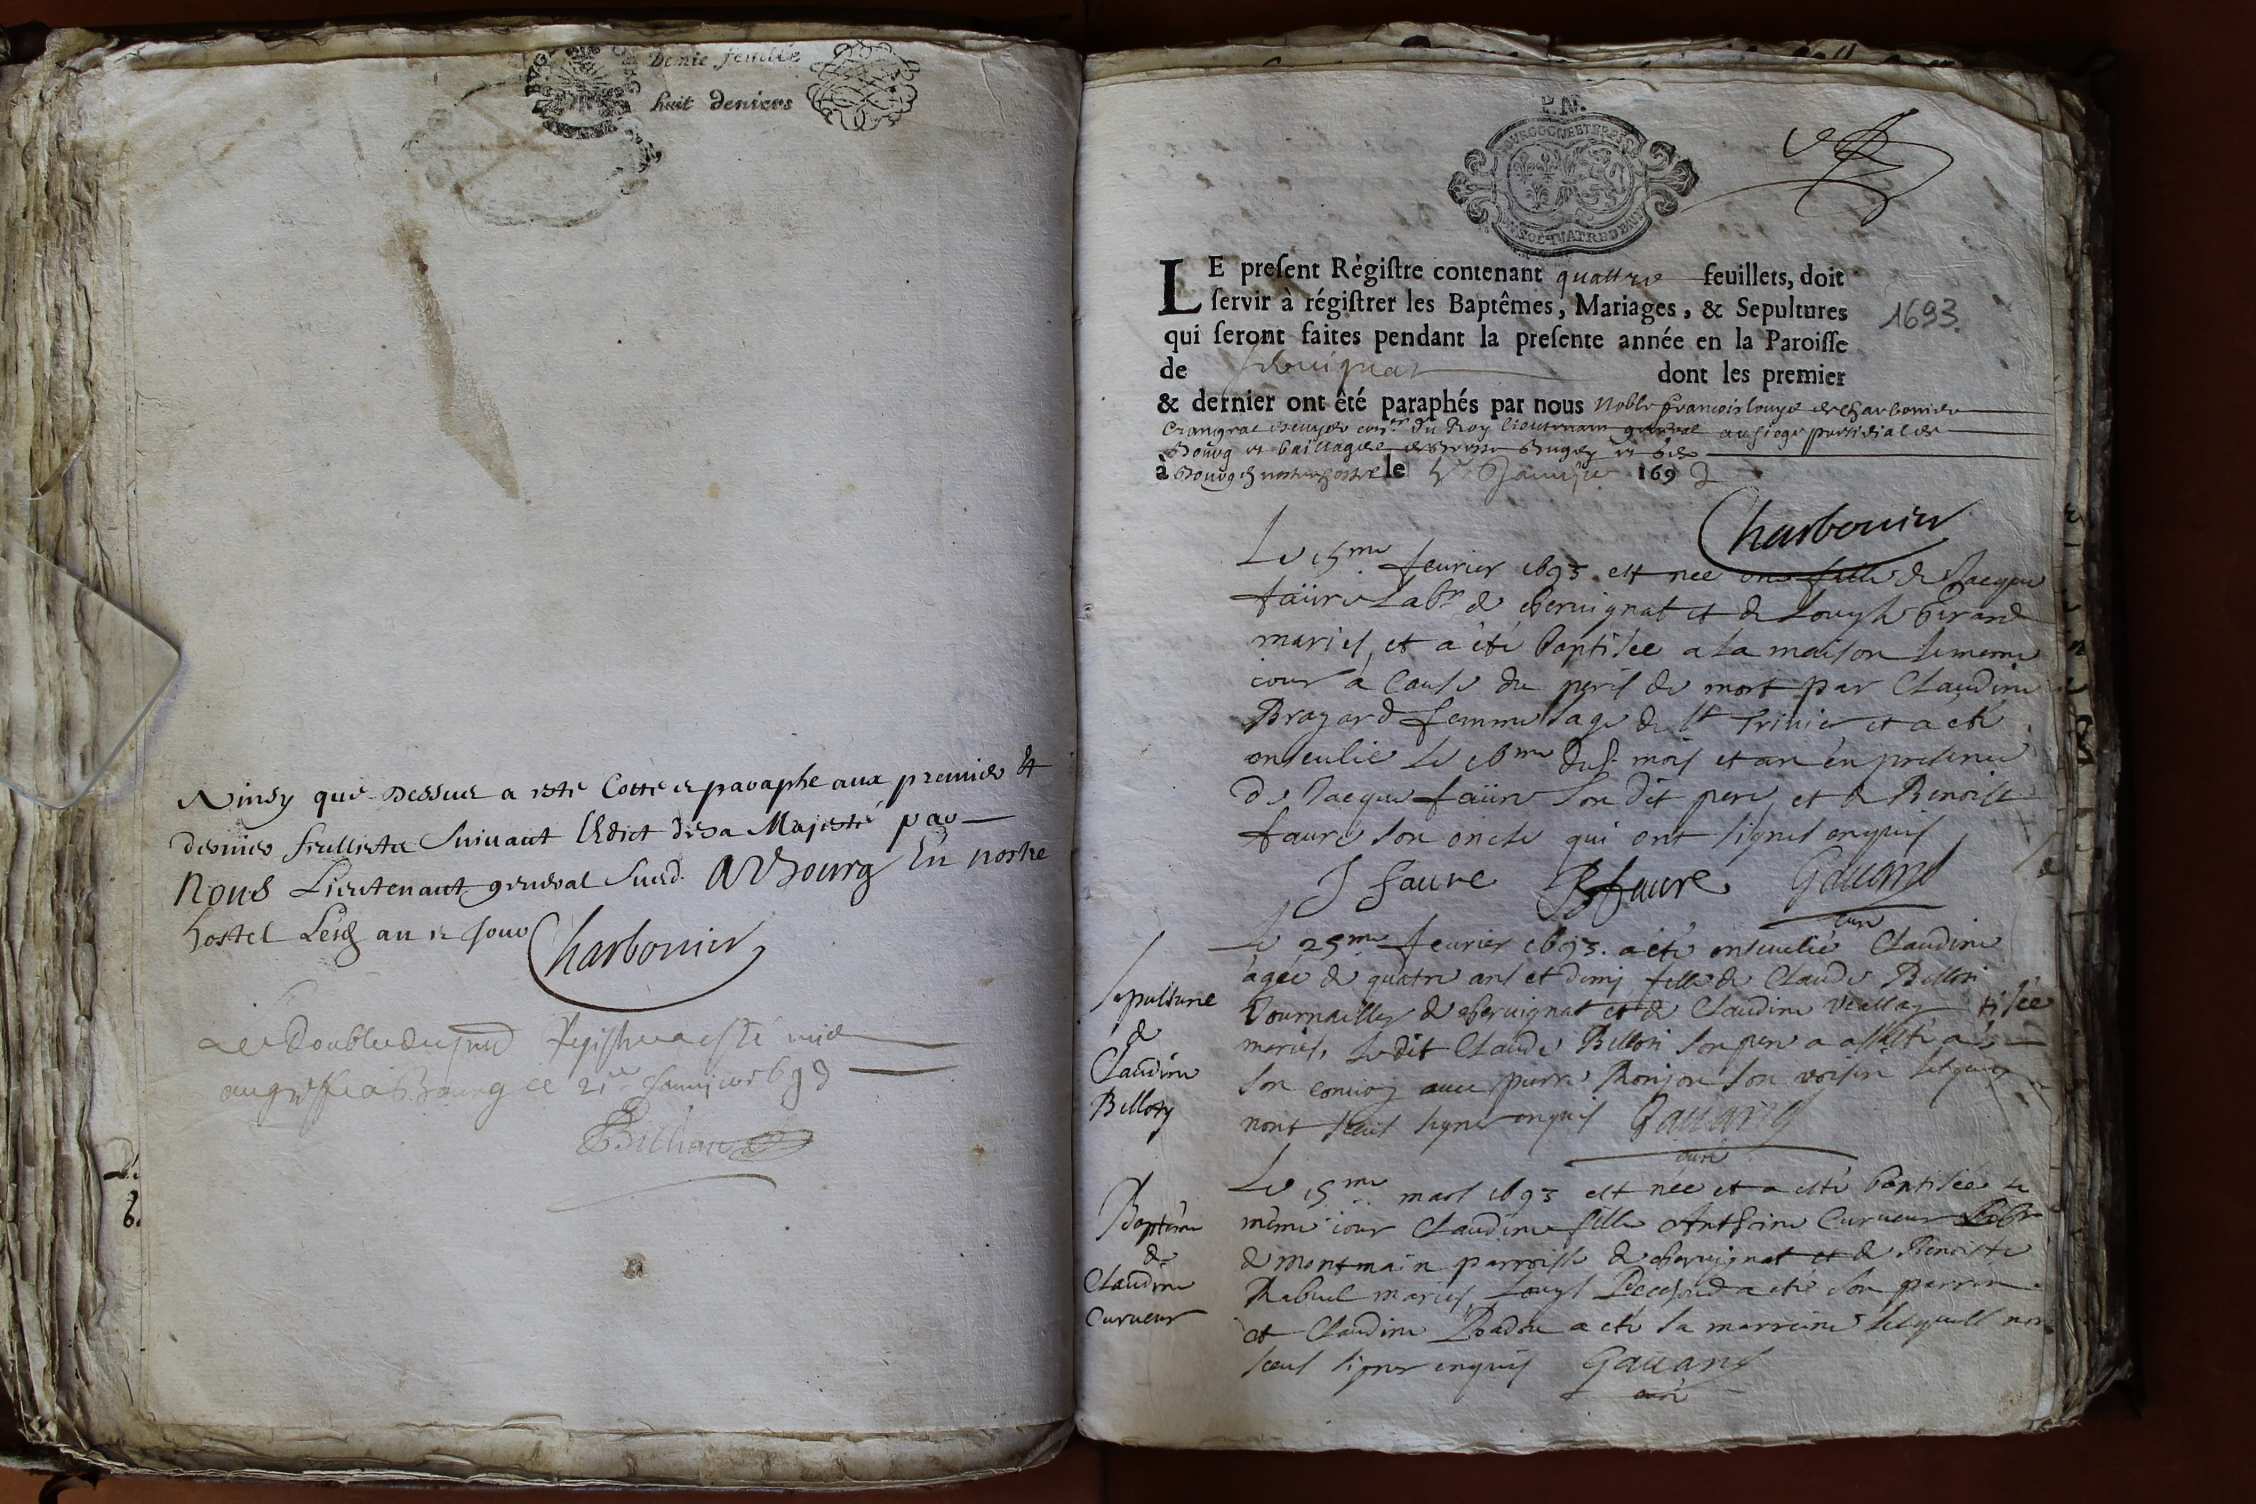 Demie feuille
huit deniers
Ainsy que Dessus a esté Cotté et paraphé aux premier Et
dernier feuillets Suivant L'Edict de sa Majesté par
Nous Lieutenant general Susd. A Bourg En nostre
hostel Lesd an et Jour Charbonier
Le Double du registre a esté mis
au greffe a Bourg ce 21e Janvier
1693.
LE preſent Régiſtre contenant quattre feuillets, doit
ſervir à régiſtrer les Baptêmes, Mariages, & Sepultures
qui ſeront faites pendant la preſente année en la Paroiſſe
de dont les premier
& dernier ont êté paraphés par nous Noble francois louys de Charbonier
Crangeac escuyer conser du Roy Lieutenant general au siege presidial de
Bourg et bailliage de Bresse Bugey et
à Bourg en nostre hostel le Janvier 169
Charbonier
Le 15me feurier 1693 est née une fille de Jacque
faure Labr de cheruignat et de Louyse Girard
mariés, et a été baptisée a la maison le meme
iour a cause du peril de mort par Claudine
Brazard femme sage de St Triuier et a eté
enseuelie le 16me dud. mois et an en presence
de Jacque faure son dit pere, et de Benoist
faure son oncle qui ont signés enquis
J faure B faure
curé
Sepulture
de
Claudine
Le 25me feurier 1693. a été enseuelie Claudine
agée de quatre ans et demi fille de Claude
de cheruignat et de Claudine
mariés, le dit Claude son pere a assisté a
son conuoy auec pierre Monjon son voisin lesquels
nont sceus signer enquis
curé
Baptême
de
Claudine
Curueur
Le 15me mars 1693 est née et a esté baptisée le
même iour Claudine fille Anthoine Curueur Labr
de montmain parroisse de cheruignat et de Benoiste
Rabuel mariés, Louys a eté son parrin
et Claudine a eté sa marreine lesquells non
sceus signer enquis
curé